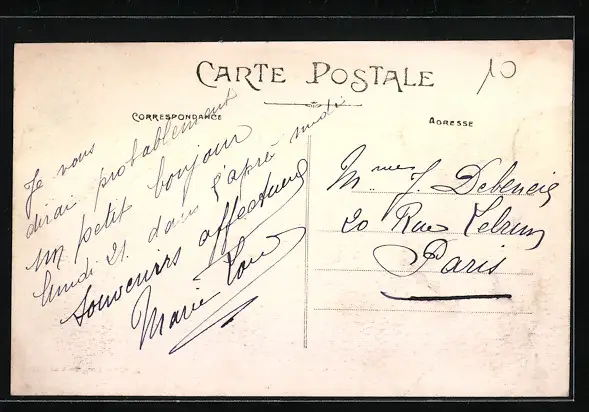 CARTE POSTALE
10
CORRESPONDANCE
ADRESSE
Je vous
dirai probablement
un petit bonjour
lundi 21. dans l'après midi
Souvenirs affectueux
Marie
Mme J.
20 Rue Lebrun
Paris